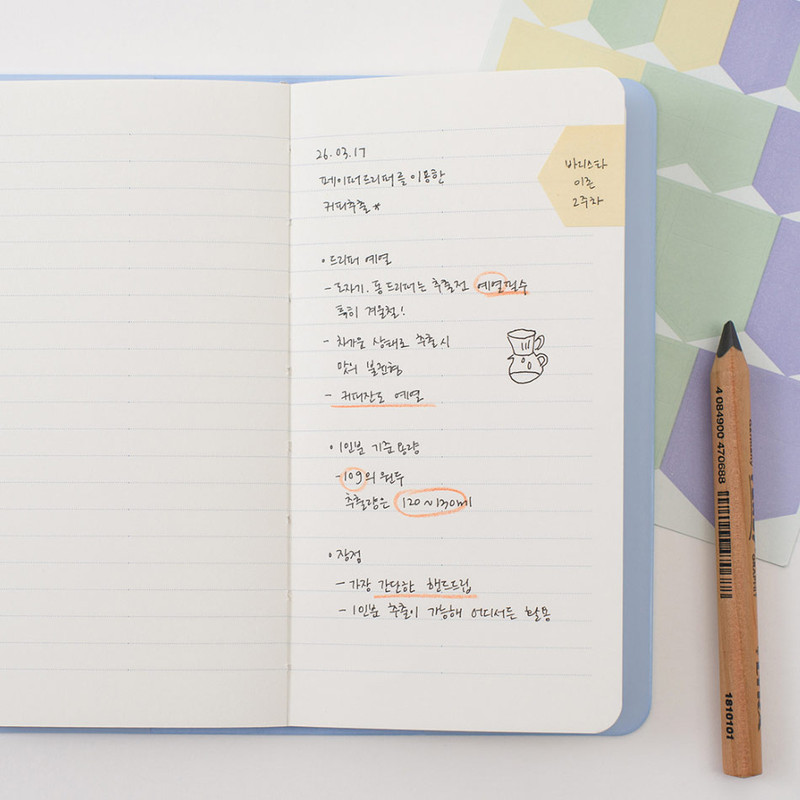 26.03.17
페이퍼드리퍼를 이용한
커피추출*
바리스타
이론
2주차
• 드리퍼 예열
- 도자기. 동 드리퍼는 추출전 예열필수
특히 겨울철!
- 차가운 상태로 추출시
맛의 불균형
- 커피잔도 예열
• 1인분 기준용량
- 10g의 원두
추출량은 120~130ml
• 장점
- 가장 간단한 핸드드립
- 1인분 추출이 가능해 어디서든 활용
4 084900 470688
Germany
GRAPHIT
1810101